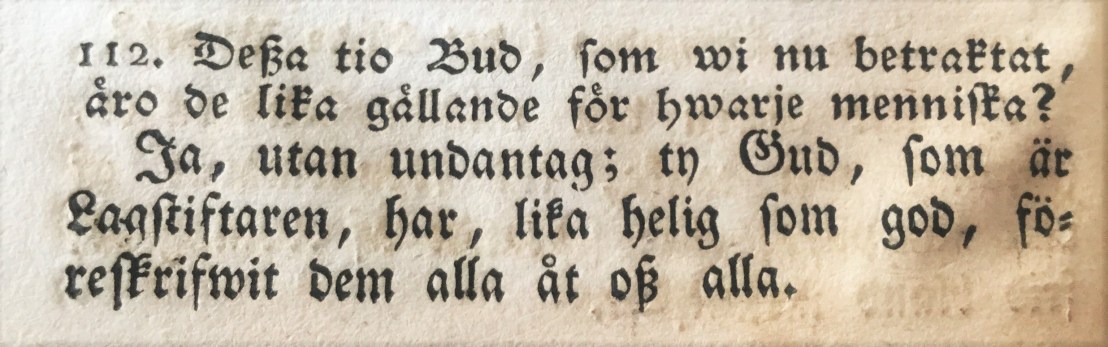 112. Deßa tio Bud, ſom wi nu betraktat,
äro de lika gällande för hwarje menniſka?
Ja, utan undantag; ty Gud, ſom är
Lagſtiftaren, har, lika helig ſom god, fö-
reſkrifwit dem alla åt oß alla.